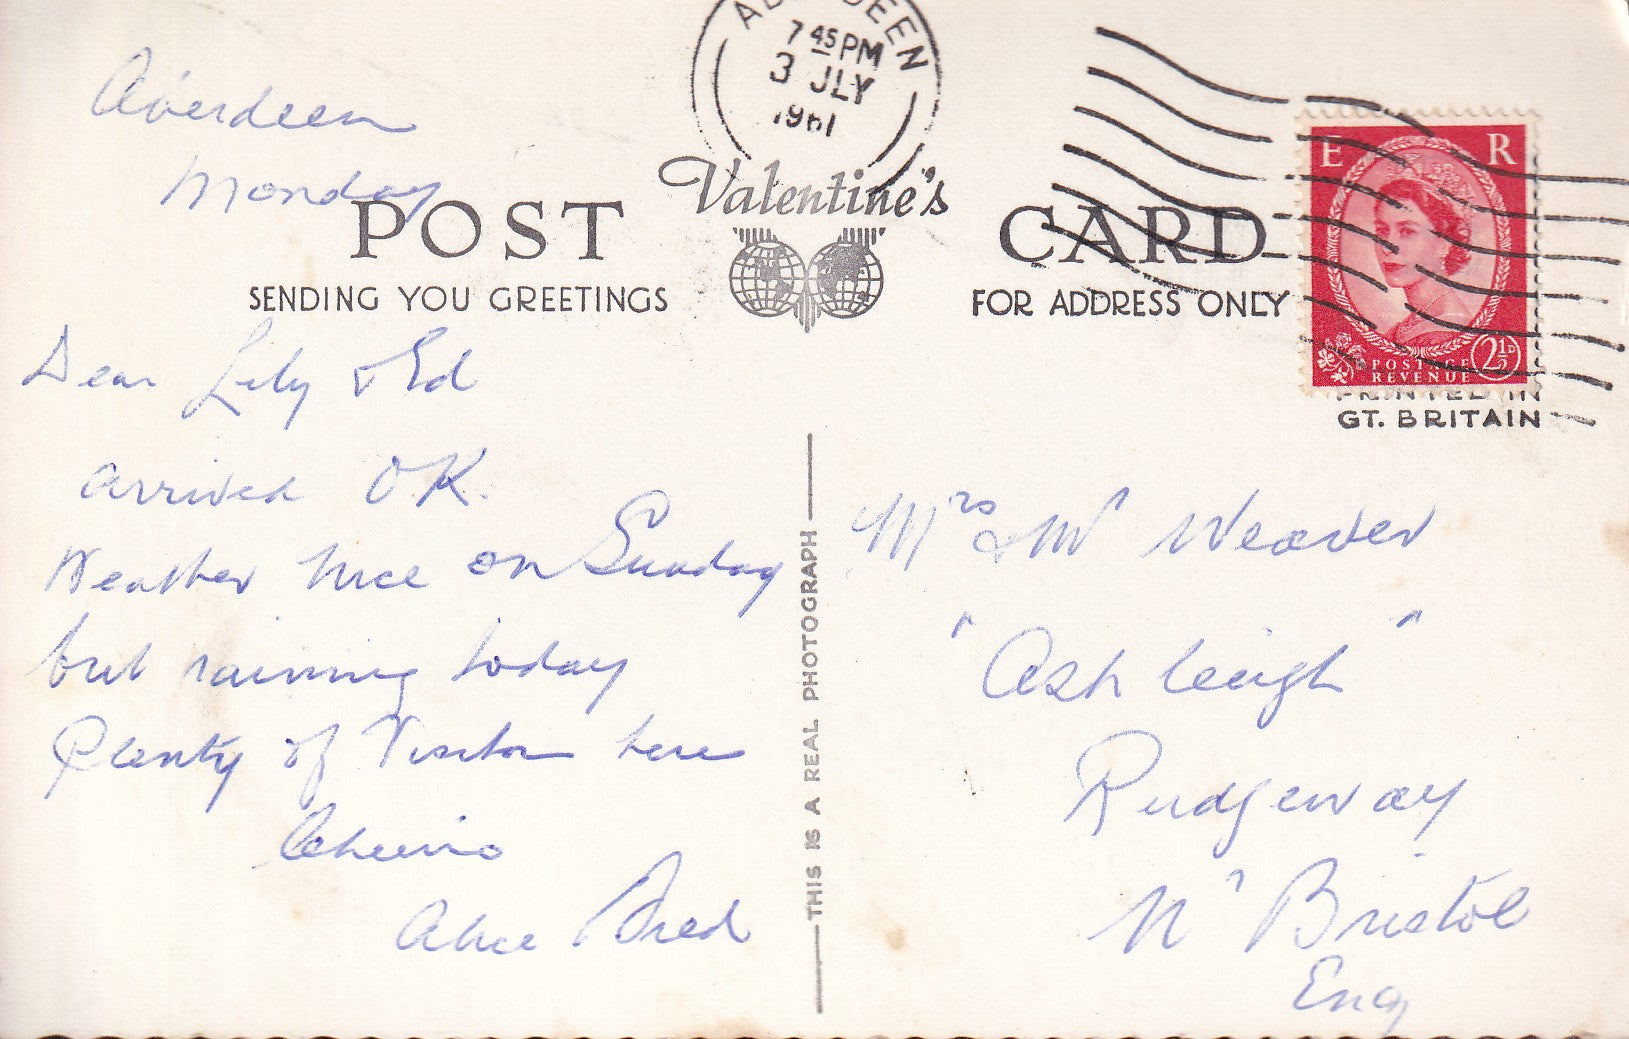 ABERDEEN
7 45 PM
3 JLY
1961
Aberdeen
Monday
POST Valentine's CARD
SENDING YOU GREETINGS
FOR ADDRESS ONLY
E R
POSTAGE
REVENUE
2½D
PRINTED IN
GT. BRITAIN
Dear Lily & Ed
arrived O.K.
Weather nice on Sunday
but raining today
Plenty of Visitors here
Cheerio
Alice Fred
THIS IS A REAL PHOTOGRAPH
Mrs & Mr Weaver
"Ashleigh"
Rudgeway
Nr Bristol
Eng